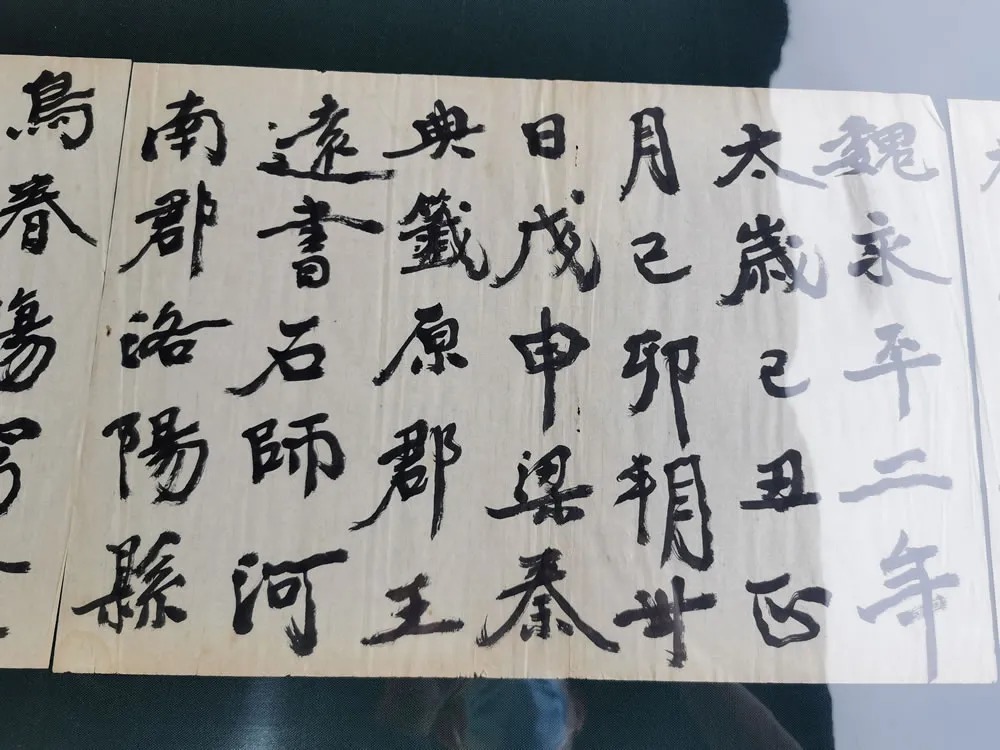 魏永平二年
太歲己丑正
月己卯朔卅
日戊申梁秦
典籤原郡王
遠書石師河
南郡洛陽縣
鳥春